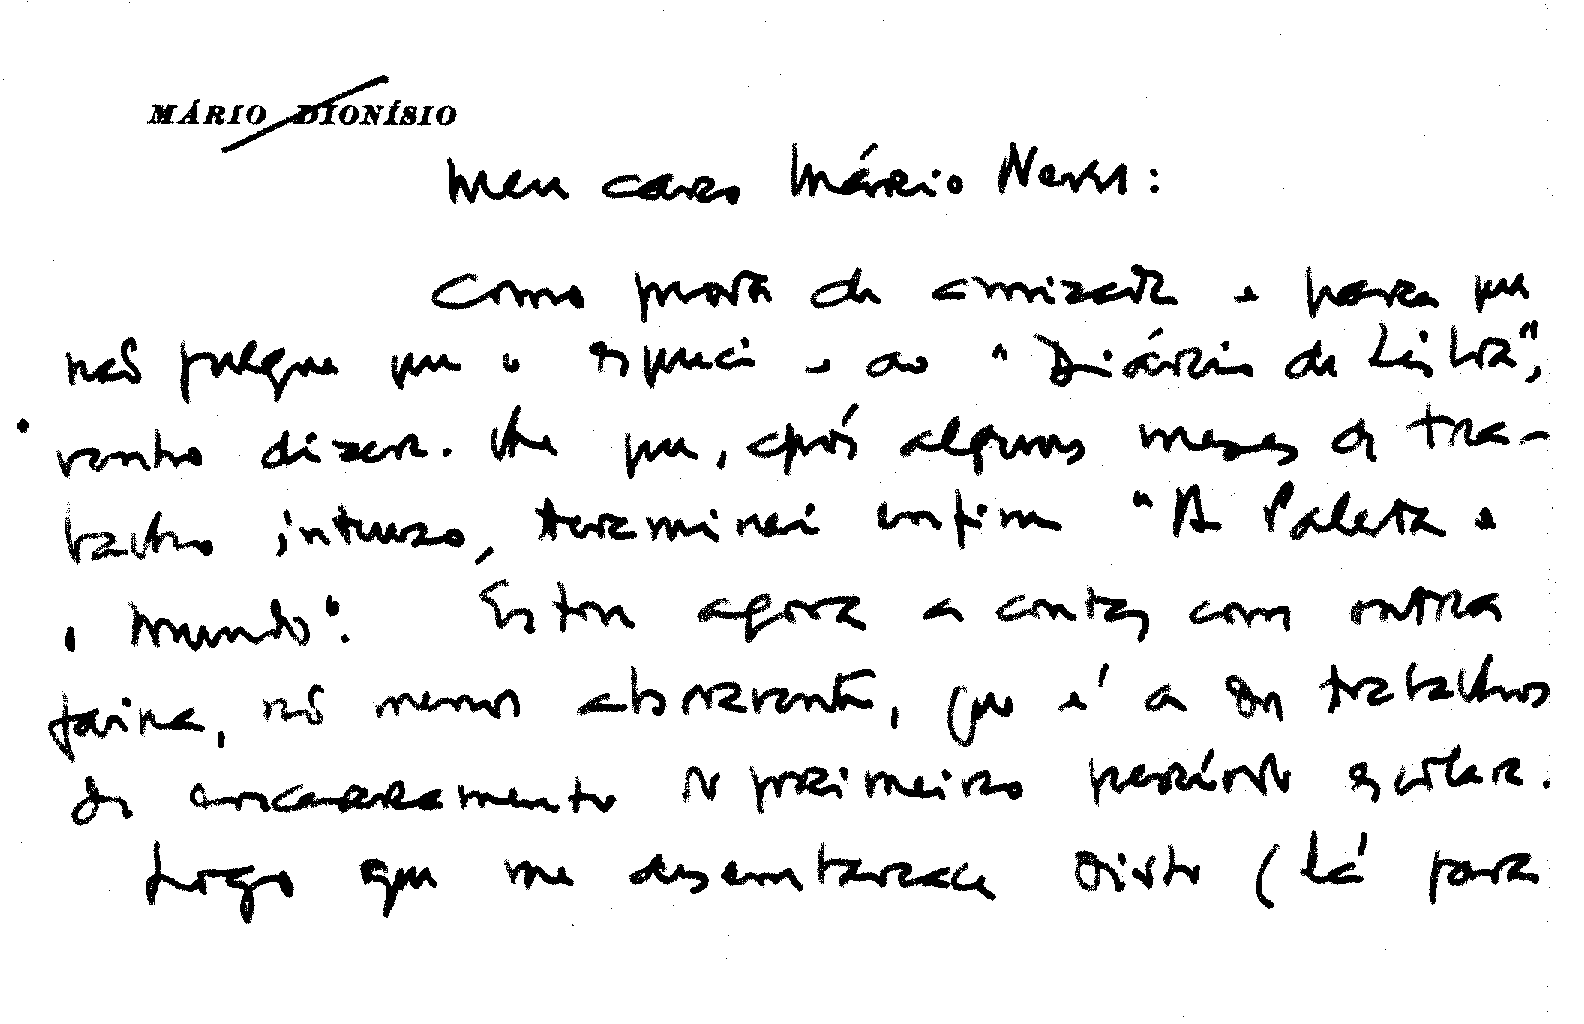 MÁRIO DIONÍSIO
Meu caro Mário Neves:
Como prova de amizade e para que
não julgue que o esqueci e ao "Diário de Lisboa",
venho dizer-lhe que, após alguns meses de tra-
balho intenso, terminei enfim "A Paleta e
o Mundo". Estou agora a contas com outra
faina, não menos absorvente, que é a dos trabalhos
de encerramento do primeiro período escolar.
Logo que me desembarace disto (lá para